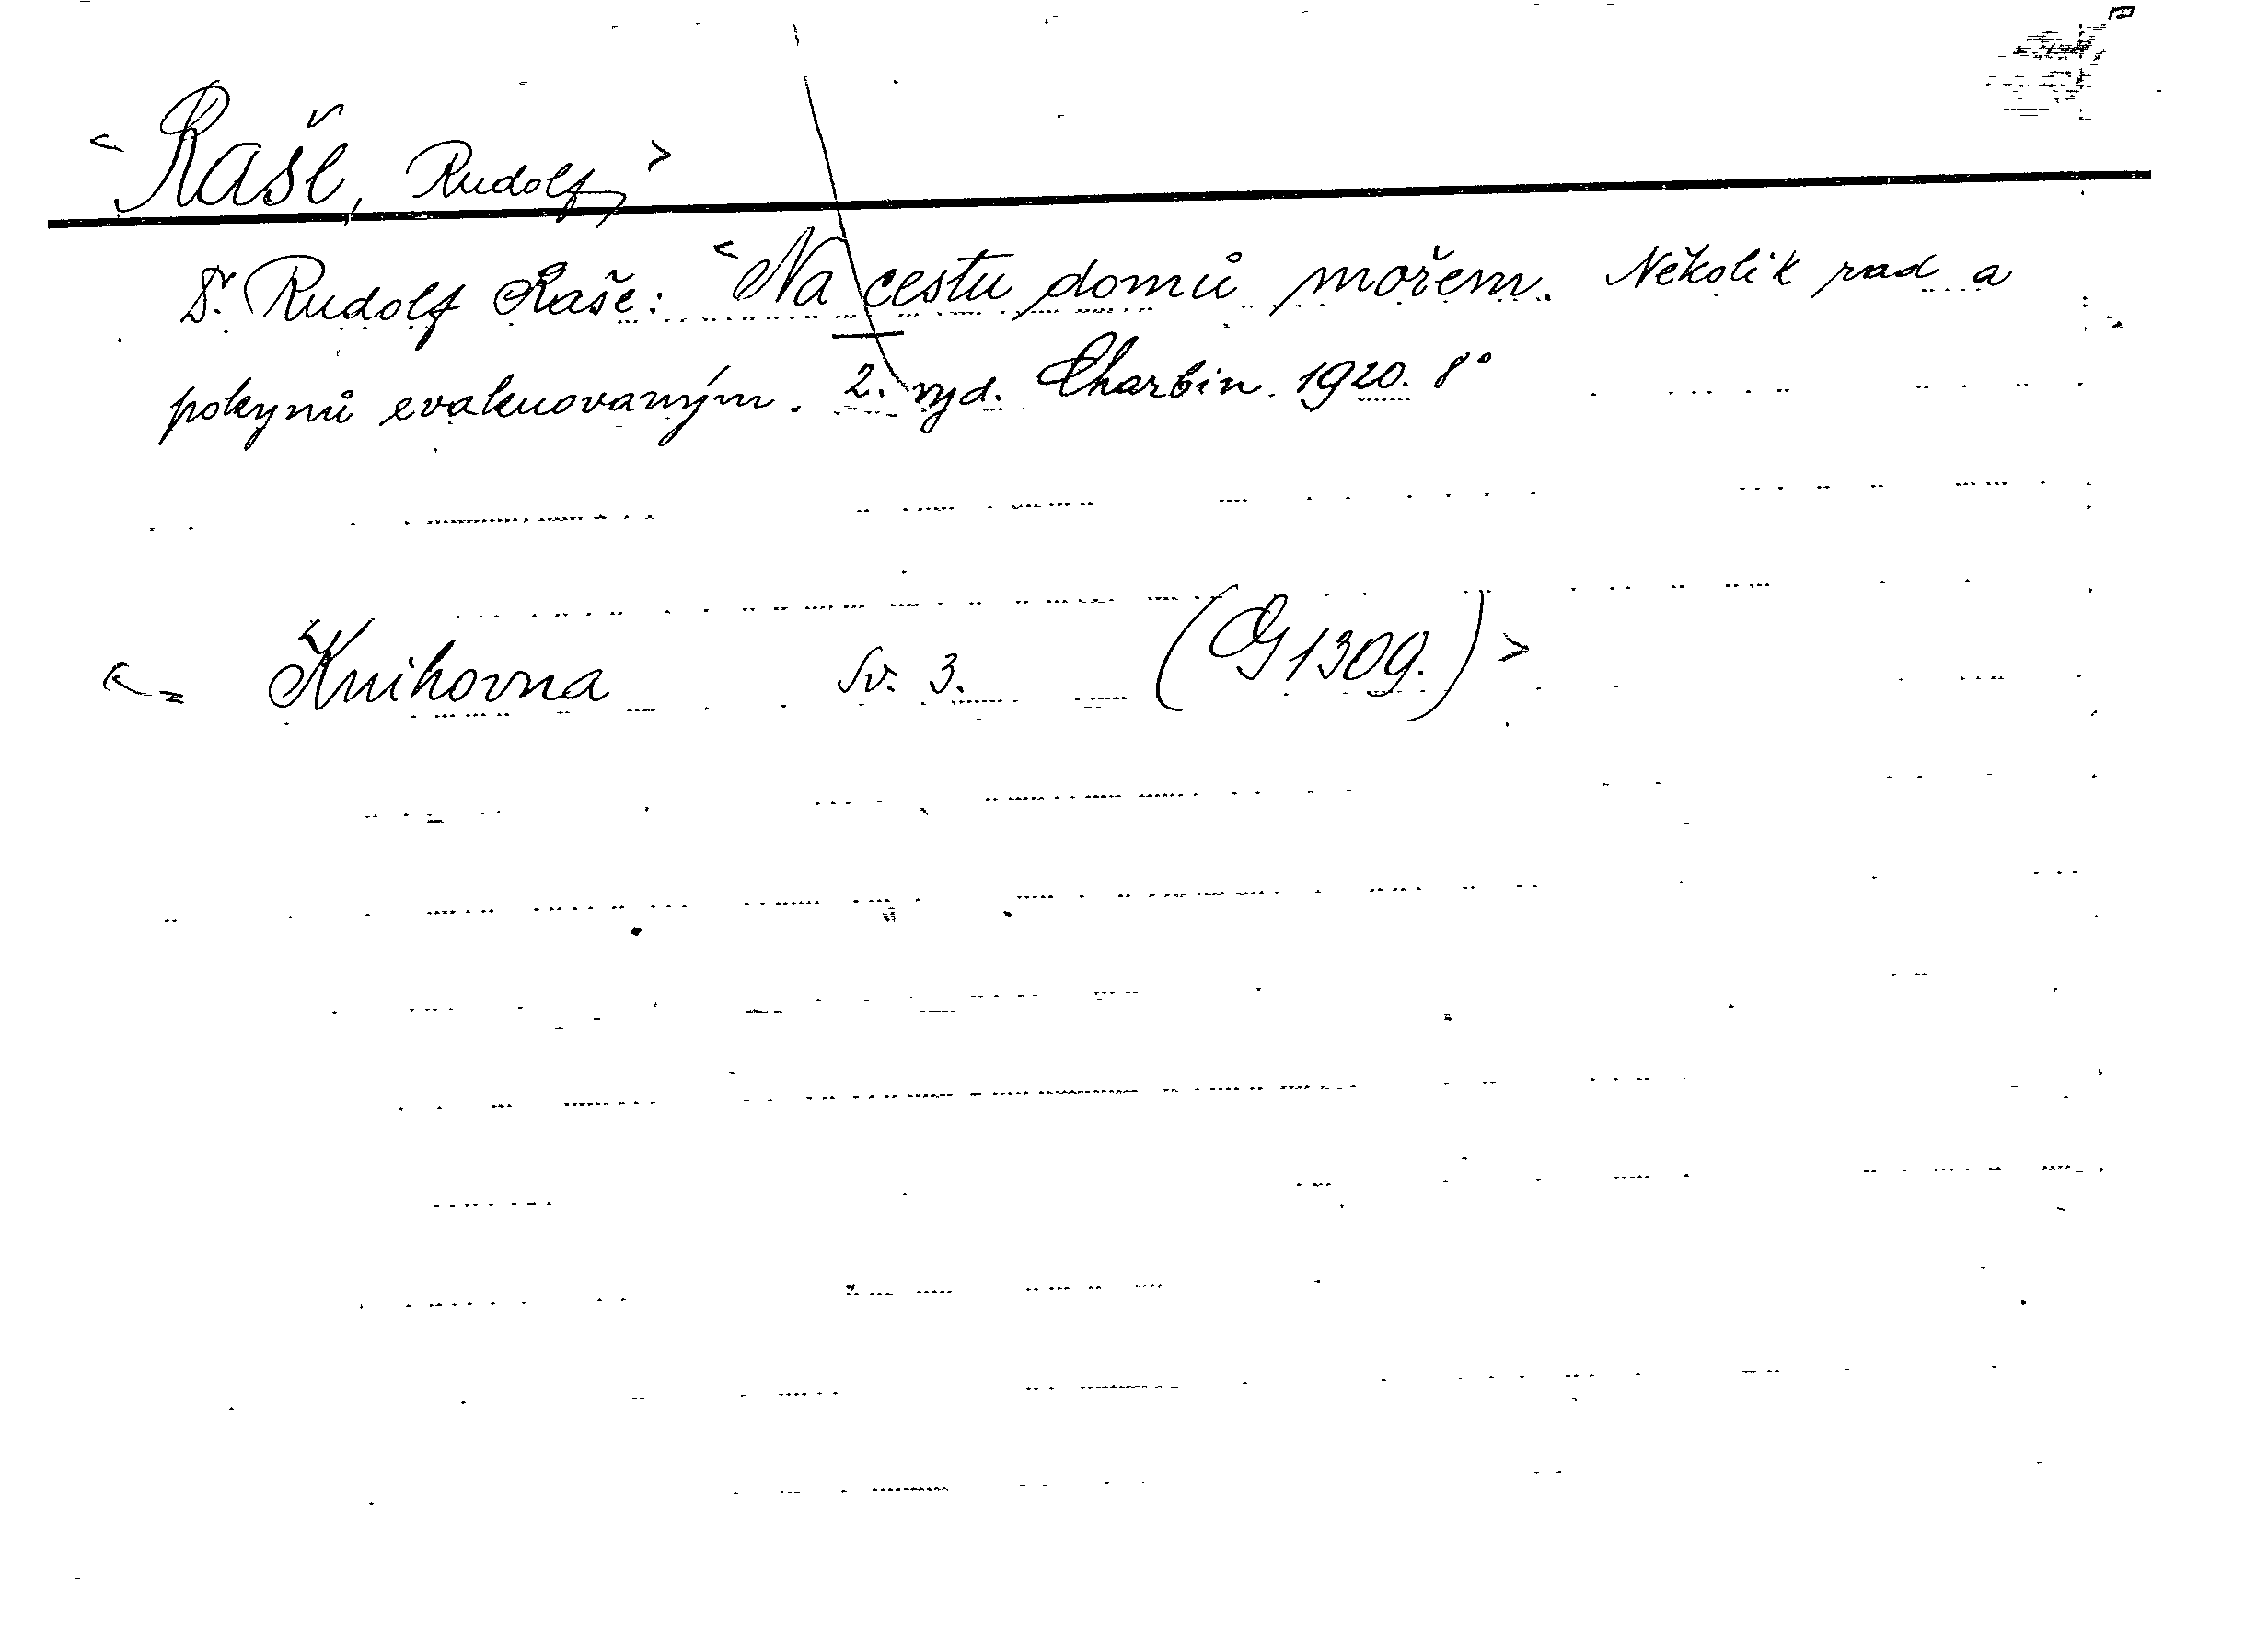 < Raše, Rudolf, >
Dr. Rudolf Raše: < Na cestu domů mořem. Několik rad a
pokynů evakuovaným. 2. vyd. Charbin. 1920. 8°
<= Knihovna Sv. 3. (G 1309.) >